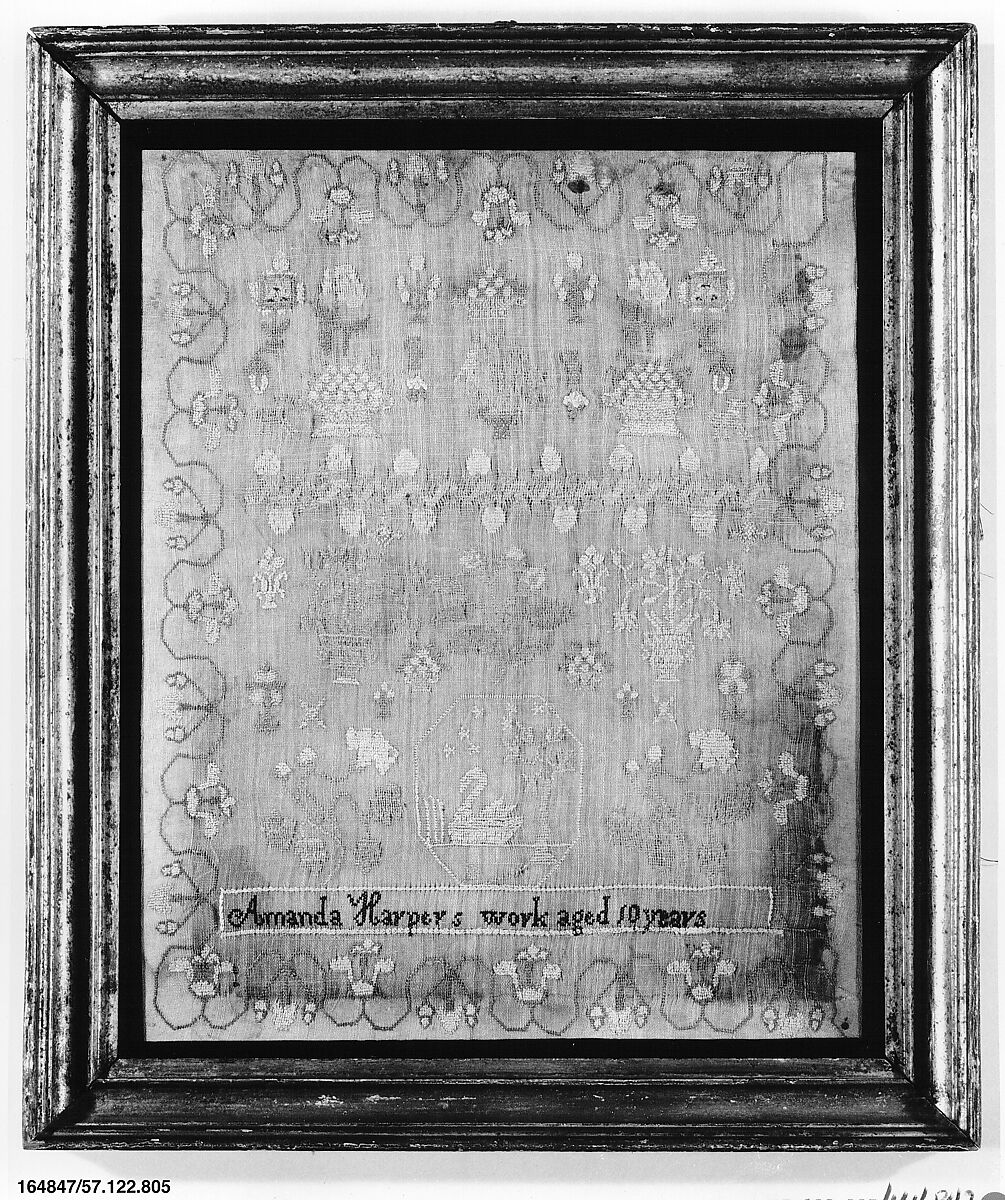 Amanda Harpers work aged 10 years
164847/57.122.805